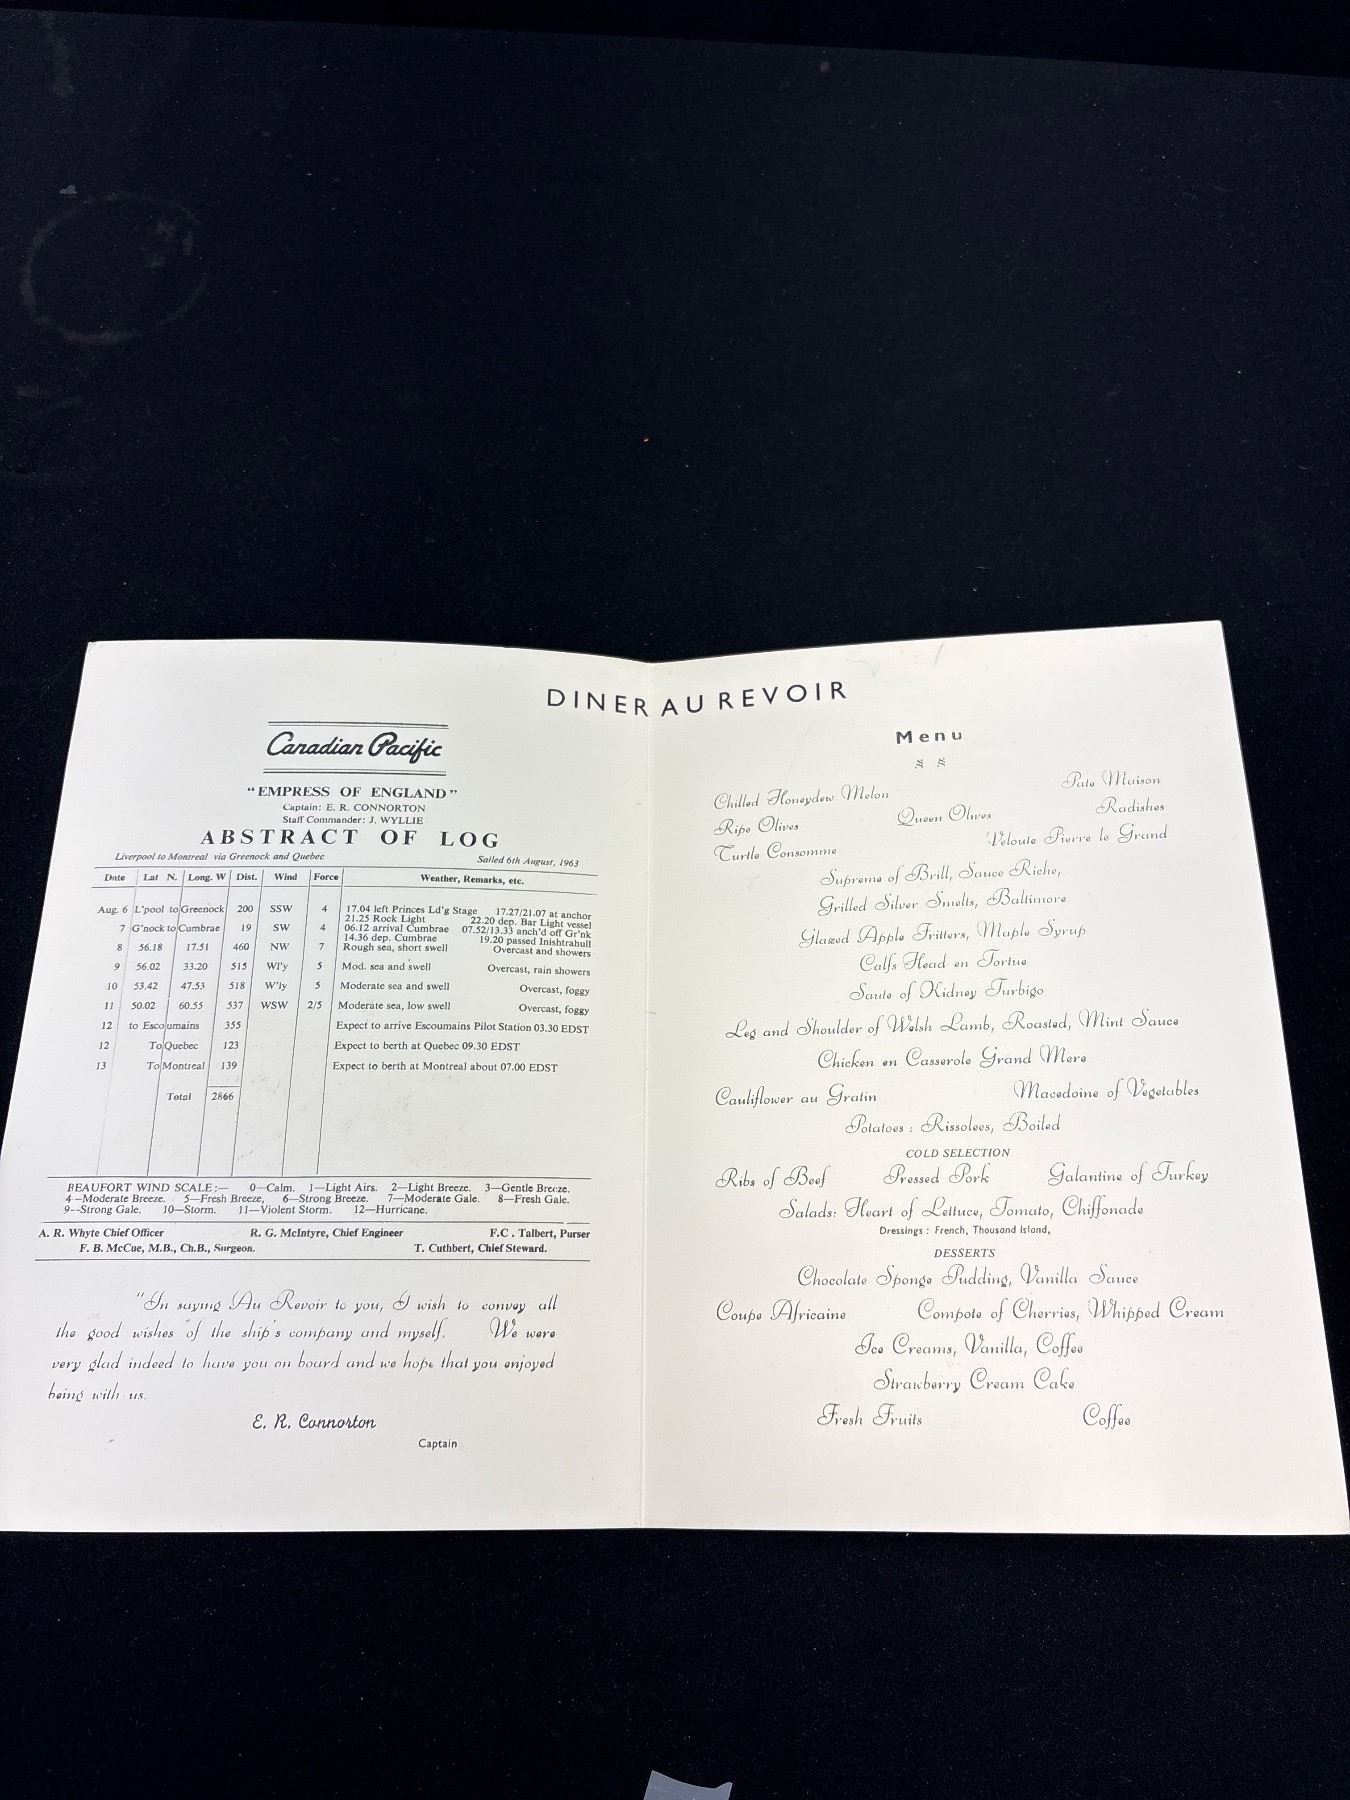 DINER AU REVOIR
Canadian Pacific
"EMPRESS OF ENGLAND"
Captain: E. R. CONNORTON
Staff Commander: J. WYLLIE
ABSTRACT OF LOG
Liverpool to Montreal via Greenock and Quebec Sailed 6th August, 1963
Date Lat N. Long. W Dist. Wind Force Weather, Remarks, etc.
Aug. 6 L'pool to Greenock 200 SSW 4 17.04 left Princes Ld'g Stage 17.27/21.07 at anchor
21.25 Rock Light 22.20 dep. Bar Light vessel
7 G'nock to Cumbrae 19 SW 4 06.12 arrival Cumbrae 07.52/13.33 anch'd off Gr'nk
14.36 dep. Cumbrae 19.20 passed Inishtrahull
8 56.18 17.51 460 NW 7 Rough sea, short swell Overcast and showers
9 56.02 33.20 515 Wl'y 5 Mod. sea and swell Overcast, rain showers
10 53.42 47.53 518 W'ly 5 Moderate sea and swell Overcast, foggy
11 50.02 60.55 537 WSW 2/5 Moderate sea, low swell Overcast, foggy
12 to Escoumains 355 Expect to arrive Escoumains Pilot Station 03.30 EDST
12 To Quebec 123 Expect to berth at Quebec 09.30 EDST
13 To Montreal 139 Expect to berth at Montreal about 07.00 EDST
Total 2866
BEAUFORT WIND SCALE:— 0—Calm. 1—Light Airs. 2—Light Breeze. 3—Gentle Breeze.
4—Moderate Breeze. 5—Fresh Breeze, 6—Strong Breeze. 7—Moderate Gale. 8—Fresh Gale.
9--Strong Gale. 10—Storm. 11—Violent Storm. 12—Hurricane.
A. R. Whyte Chief Officer R. G. McIntyre, Chief Engineer F.C . Talbert, Purser
F. B. McCue, M.B., Ch.B., Surgeon. T. Cuthbert, Chief Steward.
"In saying Au Revoir to you, I wish to convey all
the good wishes of the ship's company and myself. We were
very glad indeed to have you on board and we hope that you enjoyed
being with us.
E. R. Connorton
Captain
Menu
Chilled Honeydew Melon Pate Maison
Ripe Olives Queen Olives Radishes
Turtle Consomme Veloute Pierre le Grand
Supreme of Brill, Sauce Riche,
Grilled Silver Smelts, Baltimore
Glazed Apple Fritters, Maple Syrup
Calfs Head en Tortue
Saute of Kidney Turbigo
Leg and Shoulder of Welsh Lamb, Roasted, Mint Sauce
Chicken en Casserole Grand Mere
Cauliflower au Gratin Macedoine of Vegetables
Potatoes : Rissolees, Boiled
COLD SELECTION
Ribs of Beef Pressed Pork Galantine of Turkey
Salads: Heart of Lettuce, Tomato, Chiffonade
Dressings : French, Thousand Island,
DESSERTS
Chocolate Sponge Pudding, Vanilla Sauce
Coupe Africaine Compote of Cherries, Whipped Cream
Ice Creams, Vanilla, Coffee
Strawberry Cream Cake
Fresh Fruits Coffee